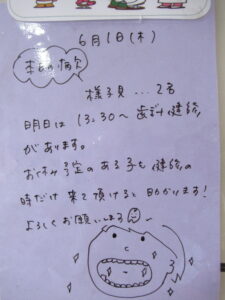 6月1日(木)
本日の病欠
様子見...2名
明日は 13:30〜 歯科健診
があります。
お休み予定のある子も 健診の
時だけ 来て頂けると助かります!
よろしくお願いします